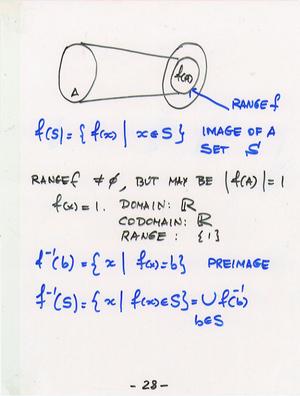 A
f(A)
RANGE f
f(S) = { f(x) | x ∈ S } IMAGE OF A
SET S
RANGE f ≠ ∅, BUT MAY BE |f(A)| = 1
f(x) = 1. DOMAIN: ℝ
CODOMAIN: ℝ
RANGE: {1}
f⁻¹(b) = { x | f(x) = b } PREIMAGE
f⁻¹(S) = { x | f(x) ∈ S } = ∪ f⁻¹(b)
b ∈ S
- 28 -